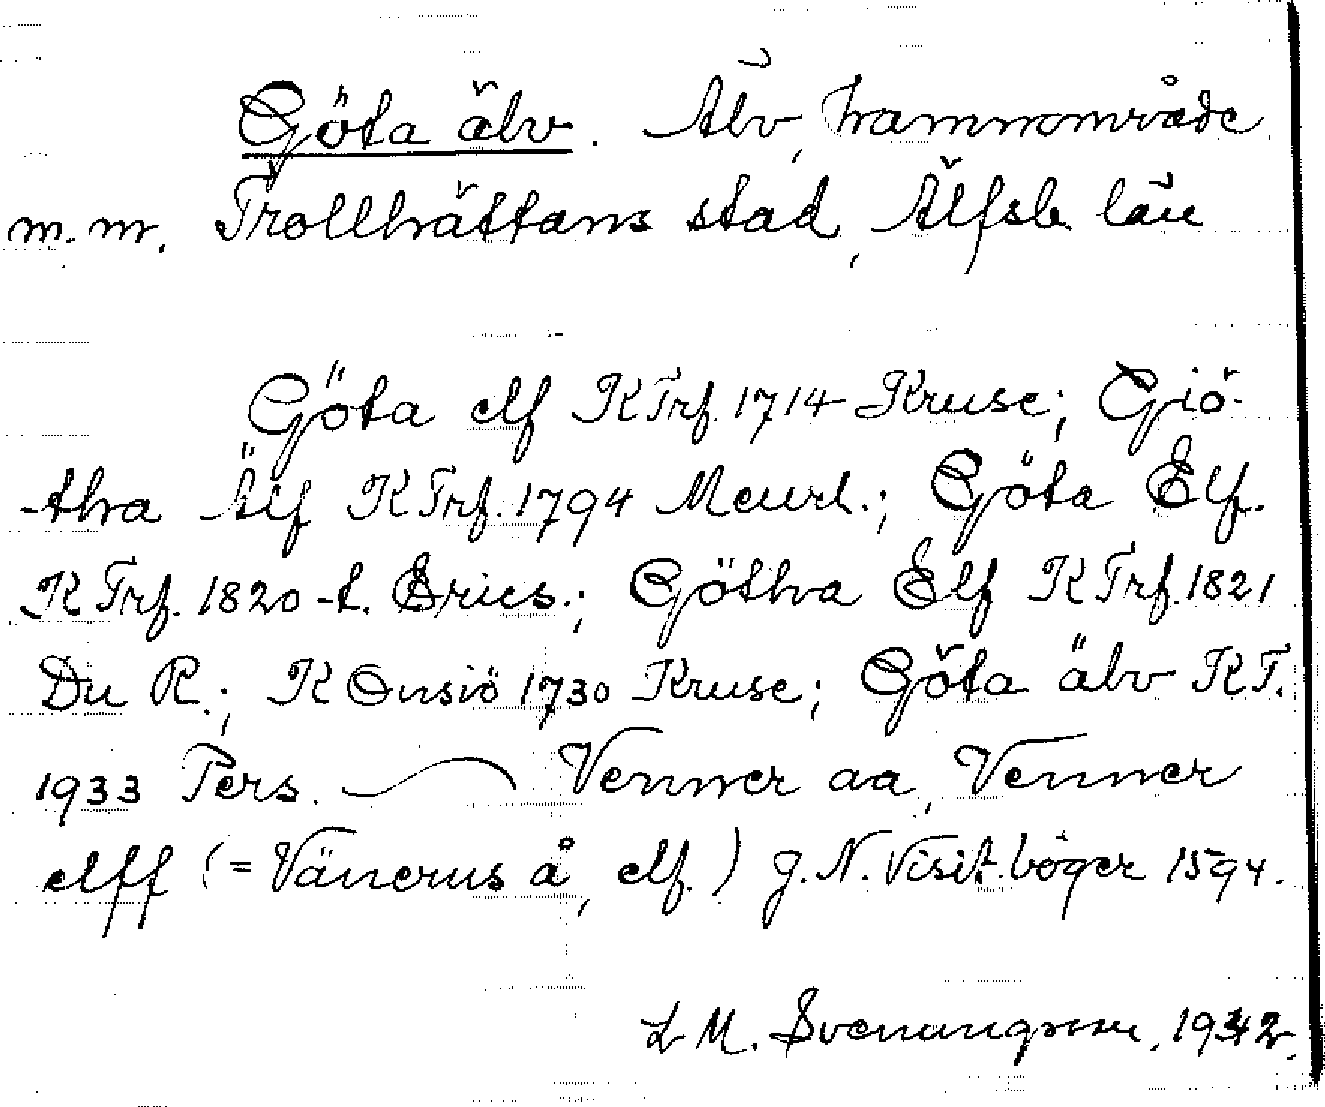 Göta älv. Älv, hamnområde
m.m. Trollhättans stad, Älfsb. län
Göta elf KTrf. 1714 Kruse; Giö-
tha Älf KTrf. 1794 Meurl.; Göta Elf.
KTrf. 1820-t. Erics.; Götha Elf KTrf. 1821
Du R.; K Onsiö 1730 Kruse; Göta älv KT.
1933 Pers. Venner aa, Venner
elff (= Vänerns å, elf.) J. N. Visit.böger 1594.
L M. 1942.